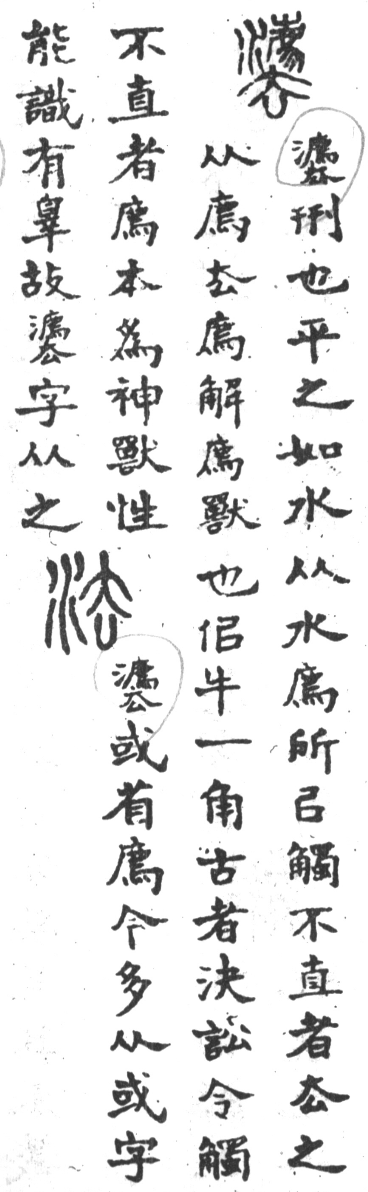 灋
灋刑也平之如水从水廌所㠯觸不直者厺之
从廌厺廌解廌獸也佀牛一角古者決訟令觸
不直者廌本為神獸性
能識有辠故灋字从之
法
灋或省廌今多从或字